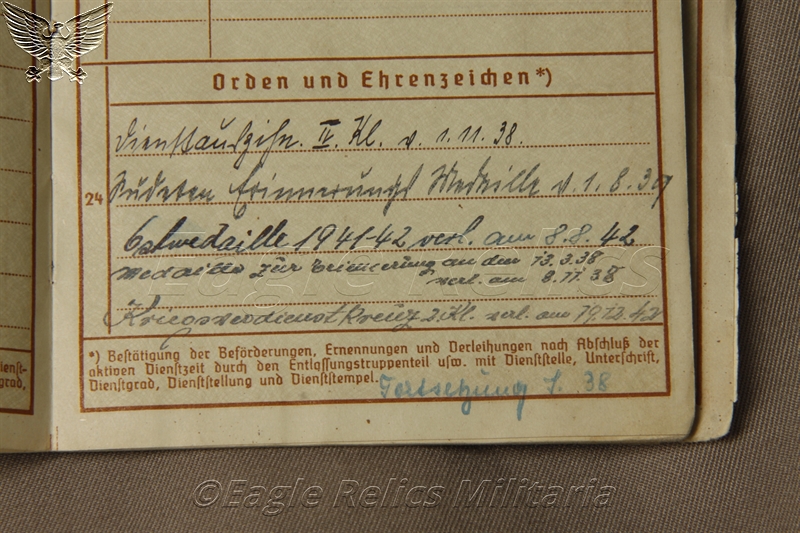 Orden und Ehrenzeichen*)
Dienstauszchn. IV. Kl. v. 1.11.38.
24
Sudeten Erinnerungs Medaille v. 1.8.39
Ostmedaille 1941-42 verl. am 8.8.42
Medaille zur Erinnerung an den 13.3.38
verl. am 8.11.38
Kriegsverdienstkreuz 2. Kl. verl. am 19.12.42
*) Bestätigung der Beförderungen, Ernennungen und Verleihungen nach Abschluß der
aktiven Dienstzeit durch den Entlassungstruppenteil usw. mit Dienststelle, Unterschrift,
Dienstgrad, Dienststellung und Dienststempel.
Fortsetzung S. 38
Eagle Relics
©Eagle Relics Militaria